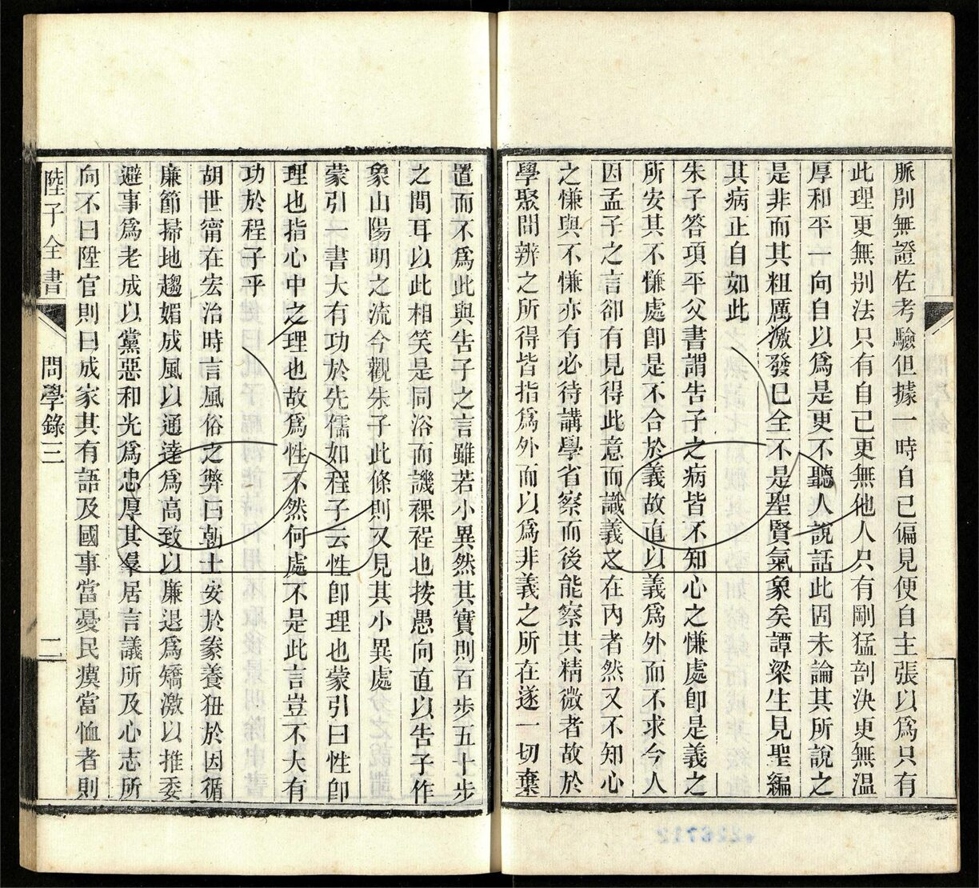 脈別無證佐考驗但據一時自己偏見便自主張以爲只有
此理更無別法只有自己更無他人只有剛猛剖決更無溫
厚和平一向自以爲是更不聽人說話此固未論其所說之
是非而其粗厲激發已全不是聖賢氣象矣譚梁生見聖編
其病止自如此
朱子答項平父書謂告子之病皆不知心之慊處卽是義之
所安其不慊處卽是不合於義故直以義爲外而不求今人
因孟子之言卻有見得此意而識義之在內者然又不知心
之慊與不慊亦有必待講學省察而後能察其精微者故於
學聚問辨之所得皆指爲外而以爲非義之所在遂一切棄
置而不爲此與告子之言雖若小異然其實則百步五十步
之間耳以此相笑是同浴而譏裸裎也按愚向直以告子作
象山陽明之流今觀朱子此條則又見其小異處
蒙引一書大有功於先儒如程子云性卽理也蒙引曰性卽
理也指心中之理也故爲性不然何處不是此言豈不大有
功於程子乎
胡世甯在宏治時言風俗之弊曰朝士安於豢養狃於因循
廉節掃地趨媚成風以通達爲高致以廉退爲矯激以推委
避事爲老成以黨惡和光爲忠厚其羣居言議所及心志所
向不曰陞官則曰成家其有語及國事當憂民瘼當恤者則
陸子全書
問學錄三
二
226712